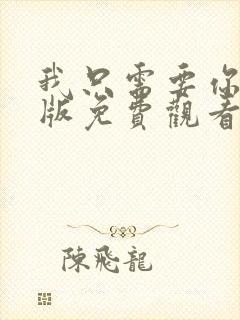 我只需要你
版免費觀看
陳飛龍